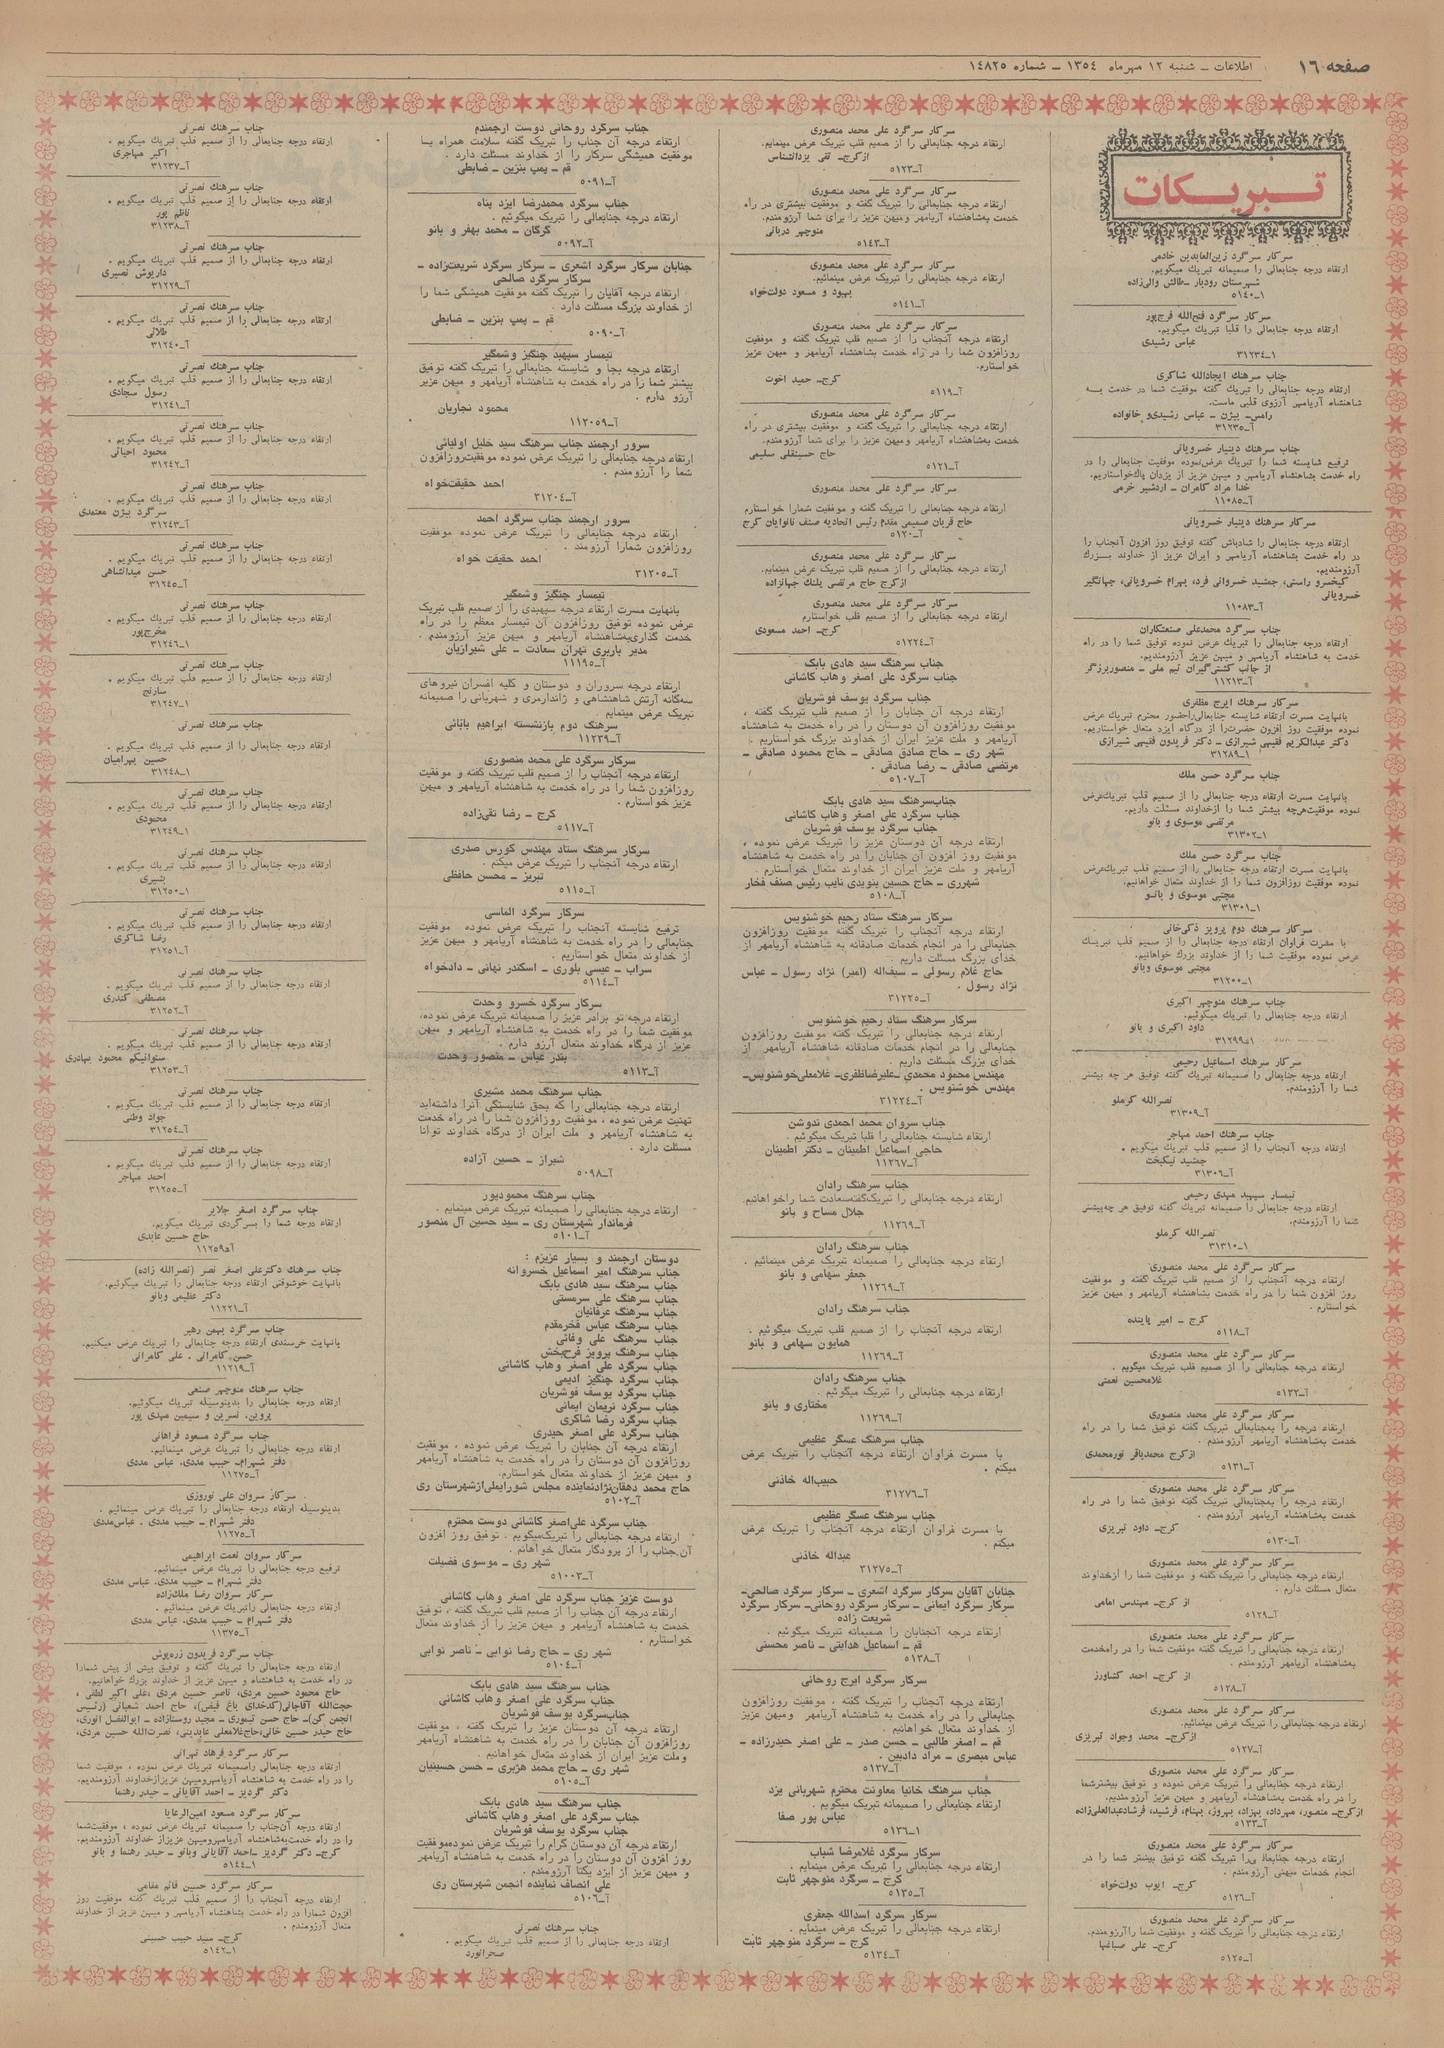 صفحه ۱۶
اطلاعات ــ شنبه ۱۲ مهرماه ۱۳۵۴ ــ شماره ۱۴۸۲۵
تبریکات
سرکار سرگرد زین‌العابدین خادمی
ارتقاء درجه جنابعالی را صمیمانه تبریك میگویم.
شهرستان رودبار ــ طالش والی‌زاده
۱ــ۵۱۴۰
سرکار سرگرد فتح‌الله فرج‌پور
ارتقاء درجه جنابعالی را قلبا تبریك میگویم.
عباس رشیدی
۱ــ۳۱۲۳۴
جناب سرهنك ایجادالله شاکری
ارتقاء درجه جنابعالی را تبریك گفته موفقیت شما در خدمت به
شاهنشاه آریامهر آرزوی قلبی ماست.
رامس ــ بیژن ــ عباس رشیدی و خانواده
آــ۳۱۲۳۵
جناب سرهنك دینیار خسرویانی
ترفیع شایسته شما را تبریك عرض نموده موفقیت جنابعالی را در
راه خدمت بشاهنشاه آریامهر و میهن عزیز از یزدان پاك خواستاریم.
خدا مراد کامران ــ اردشیر خرمی
آــ۱۱۰۸۵
سرکار سرهنك دینیار خسرویانی
ارتقاء درجه جنابعالی را شادباش گفته توفیق روز افزون آنجناب را
در راه خدمت بشاهنشاه آریامهر و ایران عزیز از خداوند بزرك
آرزومندیم.
کیخسرو راستی، جمشید خسروانی فرد، بهرام خسرویانی، جهانگیر
خسرویانی
آــ۱۱۰۸۳
جناب سرگرد محمدعلی صنعتکاران
ارتقاء درجه جنابعالی را تبریك عرض نموده توفیق شما را در راه
خدمت به شاهنشاه آریامهر و میهن عزیز آرزومندیم.
از جانب کشتی‌گیران تیم ملی ــ منصور برزگر
آــ۱۱۲۱۳
سرکار سرهنك ایرج مظفری
بانهایت مسرت ارتقاء شایسته جنابعالی را حضور محترم تبریك عرض
نموده موفقیت روز افزون حضرت را از درگاه ایزد متعال خواستاریم.
دکتر عبدالکریم فقیهی شیرازی ــ دکتر فریدون فقیهی شیرازی
۱ــ۳۱۲۸۹
جناب سرگرد حسن ملك
بانهایت مسرت ارتقاء درجه جنابعالی را از صمیم قلب تبریك عرض
نموده موفقیت هرچه بیشتر شما را از خداوند مسئلت داریم.
مرتضی موسوی و بانو
۱ــ۳۱۳۰۲
جناب سرگرد حسن ملك
بانهایت مسرت ارتقاء درجه جنابعالی را از صمیم قلب تبریك عرض
نموده موفقیت روزافزون شما را از خداوند متعال خواهانیم.
مجتبی موسوی و بانو
۱ــ۳۱۳۰۱
سرکار سرهنك دوم پرویز ذکی‌خانی
با مسرت فراوان ارتقاء درجه جنابعالی را از صمیم قلب تبریك
عرض نموده موفقیت شما را از خداوند بزرك خواهانیم.
مجتبی موسوی وبانو
۱ــ۳۱۳۰۰
جناب سرهنك منوچهر اکبری
ارتقاء درجه جنابعالی را تبریك میگوئیم.
داود اکبری و بانو
۱ــ۳۱۲۹۹
سرکار سرهنك اسماعیل رحیمی
ارتقاء درجه جنابعالی را صمیمانه تبریك گفته توفیق هر چه بیشتر
شما را آرزومندم.
نصرالله کرملو
آــ۳۱۳۰۹
جناب سرهنك احمد مهاجر
ارتقاء درجه آنجناب را از صمیم قلب تبریك میگویم .
جمشید نیکبخت
آــ۳۱۳۰۶
تیمسار سپهبد مهدی رحیمی
ارتقاء درجه جنابعالی را صمیمانه تبریك گفته توفیق هرچه بیشتر
شما را آرزومندم.
نصرالله کرملو
۱ــ۳۱۳۱۰
سرکار سرگرد علی محمد منصوری
ارتقاء درجه آنجناب را از صمیم قلب تبریك گفته و موفقیت
روز افزون شما را در راه خدمت بشاهنشاه آریامهر و میهن عزیز
خواستارم .
کرج ــ امیر پاینده
آــ۵۱۱۸
سرکار سرگرد علی محمد منصوری
ارتقاء درجه جنابعالی را از صمیم قلب تبریك میگویم .
غلامحسین نعمتی
آــ۵۱۳۲
سرکار سرگرد علی محمد منصوری
ارتقاء درجه جنابعالی را به‌جنابعالی تبریك گفته توفیق شما را در راه
خدمت به‌شاهنشاه آریامهر آرزومندم .
از کرج محمدباقر نورمحمدی
آــ۵۱۳۱
سرکار سرگرد علی محمد منصوری
ارتقاء درجه را به‌جنابعالی تبریك گفته توفیق شما را در راه
خدمت به‌شاهنشاه آریامهر آرزومندم .
کرج ــ داود تبریزی
آــ۵۱۳۰
سرکار سرگرد علی محمد منصوری
ارتقاء درجه جنابعالی را تبریك گفته و موفقیت شما را از خداوند
متعال مسئلت دارم .
از کرج ــ مهندس امامی
آــ۵۱۲۹
سرکار سرگرد علی محمد منصوری
ارتقاء درجه جنابعالی را تبریك گفته موفقیت شما را در راه خدمت
به‌شاهنشاه آریامهر آرزومندم .
از کرج ــ احمد کشاورز
آــ۵۱۲۸
سرکار سرگرد علی محمد منصوری
ارتقاء درجه جنابعالی را تبریك عرض مینمائیم.
از کرج ــ محمد وجواد تبریزی
آــ۵۱۲۷
سرکار سرگرد علی محمد منصوری
ارتقاء درجه جنابعالی را تبریك عرض نموده و توفیق بیشتر شما
را در راه خدمت بشاهنشاه آریامهر و میهن عزیز آرزومندیم.
از کرج ــ منصور، مهرداد، بهزاد، بهروز، بهنام، فرشید، فرشاد عبدالعلی‌زاده
آــ۵۱۳۳
سرکار سرگرد علی محمد منصوری
ارتقاء درجه جنابعالی را تبریك گفته توفیق بیشتر شما را در
انجام خدمات میهنی آرزومندم .
کرج ــ ایوب دولت‌خواه
آــ۵۱۲۶
سرکار سرگرد علی محمد منصوری
ارتقاء درجه جنابعالی را تبریك گفته و موفقیت شما را آرزومندم.
کرج ــ علی صباغها
آــ۵۱۲۵
سرکار سرگرد علی محمد منصوری
ارتقاء درجه جنابعالی را از صمیم قلب تبریك عرض مینمایم.
از کرج ــ تقی یزدانشناس
آــ۵۱۲۳
سرکار سرگرد علی محمد منصوری
ارتقاء درجه جنابعالی را تبریك گفته و موفقیت بیشتری در راه
خدمت به‌شاهنشاه آریامهر و میهن عزیز را برای شما آرزومندم.
منوچهر دربانی
آــ۵۱۴۳
سرکار سرگرد علی محمد منصوری
ارتقاء درجه جنابعالی را تبریك عرض مینمائیم.
بهبود و مسعود دولت‌خواه
آــ۵۱۴۱
سرکار سرگرد علی محمد منصوری
ارتقاء درجه آنجناب را از صمیم قلب تبریك گفته و موفقیت
روزافزون شما را در راه خدمت به شاهنشاه آریامهر و میهن عزیز
خواستارم.
کرج ــ حمید اخوت
آــ۵۱۱۹
سرکار سرگرد علی محمد منصوری
ارتقاء درجه جنابعالی را تبریك گفته و موفقیت بیشتری در راه
خدمت به‌شاهنشاه آریامهر و میهن عزیز را برای شما آرزومندم.
حاج حسینقلی سلیمی
آــ۵۱۲۱
سرکار سرگرد علی محمد منصوری
ارتقاء درجه جنابعالی را تبریك گفته و موفقیت شما را خواستارم
حاج قربان صمیمی مقدم رئیس اتحادیه صنف نانوایان کرج
آــ۵۱۲۰
سرکار سرگرد علی محمد منصوری
ارتقاء درجه جنابعالی را از صمیم قلب تبریك عرض مینمایم.
از کرج حاج مرتضی پلنك جهانزاده
سرکار سرگرد علی محمد منصوری
ارتقاء درجه جنابعالی را از صمیم قلب خواستارم
کرج ــ احمد مسعودی
آــ۵۱۲۲۴
جناب سرهنگ سید هادی بابك
جناب سرگرد علی اصغر وهاب کاشانی
جناب سرگرد یوسف فوشریان
ارتقاء درجه آن جنابان را از صمیم قلب تبریك گفته ،
موفقیت روزافزون آن دوستان را در راه خدمت به شاهنشاه
آریامهر و ملت عزیز ایران از خداوند بزرگ خواستاریم .
شهر ری ــ حاج صادق صادقی ــ حاج محمود صادقی ــ
مرتضی صادقی ــ رضا صادقی .
آــ۵۱۰۷
جناب سرهنگ سید هادی بابك
جناب سرگرد علی اصغر وهاب کاشانی
جناب سرگرد یوسف فوشریان
ارتقاء درجه آن دوستان عزیز را تبریك عرض نموده ،
موفقیت روز افزون آن جنابان را در راه خدمت به شاهنشاه
آریامهر و ملت عزیز ایران از خداوند متعال خواستارم .
شهرری ــ حاج حسین بنویدی نایب رئیس صنف فخار
آــ۵۱۰۸
سرکار سرهنگ ستاد رحیم خوشنویس
ارتقاء درجه آنجناب را تبریك گفته موفقیت روزافزون
جنابعالی را در انجام خدمات صادقانه به شاهنشاه آریامهر از
خدای بزرگ مسئلت داریم .
حاج غلام رسولی ــ سیف‌اله (امیر) نژاد رسول ــ عباس
نژاد رسول .
آــ۳۱۲۲۵
سرکار سرهنگ ستاد رحیم خوشنویس
ارتقاء درجه جنابعالی را تبریك گفته موفقیت روزافزون
جنابعالی را در انجام خدمات صادقانه شاهنشاه آریامهر از
خدای بزرگ مسئلت داریم .
مهندس محمود محمدی ــ علیرضا ظفری ــ غلامعلی خوشنویس ــ
مهندس خوشنویس .
آــ۳۱۲۲۴
جناب سروان محمد احمدی ندوشن
ارتقاء شایسته جنابعالی را قلبا تبریك میگوئیم .
حاجی اسماعیل اطمینان ــ دکتر اطمینان
آــ۱۱۲۶۷
جناب سرهنگ رادان
ارتقاء درجه جنابعالی را تبریك گفته سعادت شما را خواهانیم.
جلال مساح و بانو
آــ۱۱۲۶۹
جناب سرهنگ رادان
ارتقاء درجه جنابعالی را صمیمانه تبریك عرض مینمائیم .
جعفر سهامی و بانو
آــ۱۱۲۶۹
جناب سرهنگ رادان
ارتقاء درجه آنجناب را از صمیم قلب تبریك میگوئیم .
همایون سهامی و بانو
آــ۱۱۲۶۹
جناب سرهنگ رادان
ارتقاء درجه جنابعالی را تبریك میگوئیم .
مختاری و بانو
آــ۱۱۲۶۹
جناب سرهنگ عسگر عظیمی
با مسرت فراوان ارتقاء درجه آنجناب را تبریك عرض
میکنم .
حبیب‌اله خاذنی
آــ۳۱۲۷۶
جناب سرهنگ عسگر عظیمی
با مسرت فراوان ارتقاء درجه آنجناب را تبریك عرض
میکنم .
عبداله خاذنی
آــ۳۱۲۷۵
جنابان آقایان سرکار سرگرد اشعری ــ سرکار سرگرد صالحی ــ
سرکار سرگرد ایمانی ــ سرکار سرگرد روحانی ــ سرکار سرگرد
شریعت زاده
ارتقاء درجه آنجنابان را صمیمانه تبریك میگوئیم .
قم ــ اسماعیل هدایتی ــ ناصر محسنی
آــ۵۱۳۸
سرکار سرگرد ایرج روحانی
ارتقاء درجه آنجناب را تبریك گفته ، موفقیت روزافزون
جنابعالی را در خدمت به شاهنشاه آریامهر و میهن عزیز
از خداوند متعال خواهانیم .
قم ــ اصغر طالبی ــ حسن صدر ــ علی اصغر حیدرزاده ــ
عباس مبصری ــ مراد دادبین .
آــ۵۱۳۷
جناب سرهنگ خانبا معاونت محترم شهربانی یزد
ارتقاء درجه جنابعالی را صمیمانه تبریك میگویم .
عباس پور صفا
۱ــ۵۱۳۶
سرکار سرگرد غلامرضا شباب
ارتقاء درجه جنابعالی را تبریك عرض مینمایم .
کرج ــ سرگرد منوچهر ثابت
آــ۵۱۳۵
سرکار سرگرد اسدالله جعفری
ارتقاء درجه جنابعالی را تبریك عرض مینمایم .
کرج ــ سرگرد منوچهر ثابت
آــ۵۱۳۴
جناب سرگرد روحانی دوست ارجمندم
ارتقاء درجه آن جناب را تبریك گفته سلامت همراه با
موفقیت همیشگی سرکار را از خداوند مسئلت دارد .
قم ــ پمپ بنزین ــ ضابطی
آــ۵۰۹۱
جناب سرگرد محمدرضا ایزد پناه
ارتقاء درجه جنابعالی را تبریك میگوئیم .
گرگان ــ محمد بهفر و بانو
آــ۵۰۹۲
جنابان سرکار سرگرد اشعری ــ سرکار سرگرد شریعت‌زاده ــ
سرکار سرگرد صالحی
ارتقاء درجه آقایان را تبریك گفته موفقیت همیشگی شما را
از خداوند بزرگ مسئلت دارد .
قم ــ پمپ بنزین ــ ضابطی
آــ۵۰۹۰
تیمسار سپهبد چنگیز وشمگیر
ارتقاء درجه بجا و شایسته جنابعالی را تبریك گفته توفیق
بیشتر شما را در راه خدمت به شاهنشاه آریامهر و میهن عزیز
آرزو دارم .
محمود نجاریان
آــ۱۱۲۰۵۹
سرور ارجمند جناب سرهنگ سید خلیل اولیائی
ارتقاء درجه جنابعالی را تبریك عرض نموده موفقیت روزافزون
شما را آرزومندم .
احمد حقیقت‌خواه
آــ۳۱۲۰۴
سرور ارجمند جناب سرگرد احمد
ارتقاء درجه جنابعالی را تبریك عرض نموده موفقیت
روزافزون شما را آرزومند .
احمد حقیقت خواه
آــ۳۱۲۰۵
تیمسار چنگیز وشمگیر
بانهایت مسرت ارتقاء درجه سپهبدی را از صمیم قلب تبریك
عرض نموده توفیق روزافزون آن تیمسار معظم را در راه
خدمت گذاری به‌شاهنشاه آریامهر و میهن عزیز آرزومندم .
مدیر باربری تهران سعادت ــ علی شیرازیان
آــ۱۱۱۹۵
ارتقاء درجه سروران و دوستان و کلیه افسران نیروهای
سه‌گانه ارتش شاهنشاهی و ژاندارمری و شهربانی را صمیمانه
تبریك عرض مینمایم
سرهنگ دوم بازنشسته ابراهیم بابائی
آــ۱۱۲۳۹
سرکار سرگرد علی محمد منصوری
ارتقاء درجه آنجناب را از صمیم قلب تبریك گفته و موفقیت
روزافزون شما را در راه خدمت به شاهنشاه آریامهر و میهن
عزیز خواستارم .
کرج ــ رضا تقی‌زاده
آــ۵۱۱۷
سرکار سرهنگ ستاد مهندس کورس صدری
ارتقاء درجه آنجناب را تبریك عرض میکنم .
تبریز ــ محسن حافظی
آــ۵۱۱۵
سرکار سرگرد الماسی
ترفیع شایسته آنجناب را تبریك عرض نموده موفقیت
جنابعالی را در راه خدمت به شاهنشاه آریامهر و میهن عزیز
از خداوند متعال خواستاریم .
سراب ــ عیسی بلوری ــ اسکندر نهانی ــ دادخواه
آــ۵۱۱۴
سرکار سرگرد خسرو وحدت
ارتقاء درجه تو برادر عزیز را صمیمانه تبریك عرض نموده،
موفقیت شما را در راه خدمت به شاهنشاه آریامهر و میهن
عزیز از درگاه خداوند متعال آرزو دارم .
بندر عباس ــ منصور وحدت
آــ۵۱۱۳
جناب سرهنگ محمد مشیری
ارتقاء درجه جنابعالی را که بحق شایستگی آنرا داشته‌اید
تهنیت عرض نموده ، موفقیت روزافزون شما را در راه خدمت
به شاهنشاه آریامهر و ملت ایران از درگاه خداوند توانا
مسئلت دارد .
شیراز ــ حسین آزاده
آــ۵۰۹۸
جناب سرهنگ محمودپور
ارتقاء درجه جنابعالی را تبریك عرض مینمایم .
فرماندار شهرستان ری ــ سید حسین آل منصور
آــ۵۱۰۱
دوستان ارجمند و بسیار عزیزم :
جناب سرهنگ امیر اسماعیل خسروانه
جناب سرهنگ سید هادی بابك
جناب سرهنگ علی سرمستی
جناب سرهنگ عرفانیان
جناب سرهنگ عباس فخرمقدم
جناب سرهنگ علی وفائی
جناب سرهنگ پرویز فرح‌بخش
جناب سرگرد علی اصغر وهاب کاشانی
جناب سرگرد چنگیز ادیمی
جناب سرگرد یوسف فوشریان
جناب سرگرد نریمان ایمانی
جناب سرگرد رضا شاکری
جناب سرگرد علی اصغر حیدری
ارتقاء درجه آن جنابان را تبریك عرض نموده ، موفقیت
روزافزون آن دوستان را در راه خدمت به شاهنشاه آریامهر
و میهن عزیز از خداوند متعال خواستارم.
حاج محمد دهقان‌نژاد نماینده مجلس شورایملی از شهرستان ری
آــ۵۱۰۲
جناب سرگرد علی‌اصغر کاشانی دوست محترم
ارتقاء درجه جنابعالی را تبریك میگویم . توفیق روز افزون
آن جناب را از پرودگار متعال خواهانم .
شهر ری ــ موسوی فضیلت
آــ۵۱۰۰۳
دوست عزیز جناب سرگرد علی اصغر وهاب کاشانی
ارتقاء درجه آن جناب را از صمیم قلب تبریك گفته ، توفیق
خدمت به شاهنشاه آریامهر و میهن عزیز را از خداوند متعال
خواستارم .
شهر ری ــ حاج رضا نوابی ــ ناصر نوابی
آــ۵۱۰۴
جناب سرهنگ سید هادی بابك
جناب سرگرد علی اصغر وهاب کاشانی
جناب سرگرد یوسف فوشریان
ارتقاء درجه آن دوستان عزیز را تبریك گفته ، موفقیت
روزافزون آن جنابان را در راه خدمت به شاهنشاه آریامهر
وملت عزیز ایران از خداوند متعال خواهانیم .
شهر ری ــ حاج محمد هژبری ــ حسن حسینیان
آــ۵۱۰۵
جناب سرهنگ سید هادی بابك
جناب سرگرد علی اصغر وهاب کاشانی
جناب سرگرد یوسف فوشریان
ارتقاء درجه آن دوستان گرام را تبریك عرض نموده موفقیت
روز افزون آن دوستان را در راه خدمت به شاهنشاه آریامهر
و میهن عزیز از ایزد یکتا آرزومندم .
علی انصاف نماینده انجمن شهرستان ری
آــ۵۱۰۶
جناب سرهنك نصرتی
ارتقاء درجه جنابعالی را از صمیم قلب تبریك میگویم .
صحرانورد
جناب سرهنك نصرتی
ارتقاء درجه جنابعالی را از صمیم قلب تبریك میگویم .
اکبر مهاجری
آــ۳۱۲۳۷
جناب سرهنك نصرتی
ارتقاء درجه جنابعالی را از صمیم قلب تبریك میگویم .
ناظم پور
آــ۳۱۲۳۸
جناب سرهنك نصرتی
ارتقاء درجه جنابعالی را از صمیم قلب تبریك میگویم .
داریوش نصیری
آــ۳۱۲۲۹
جناب سرهنك نصرتی
ارتقاء درجه جنابعالی را از صمیم قلب تبریك میگویم .
طلائی
آــ۳۱۲۴۰
جناب سرهنك نصرتی
ارتقاء درجه جنابعالی را از صمیم قلب تبریك میگویم .
رسول سجادی
آــ۳۱۲۴۱
جناب سرهنك نصرتی
ارتقاء درجه جنابعالی را از صمیم قلب تبریك میگویم .
محمود احیائی
آــ۳۱۲۴۲
جناب سرهنك نصرتی
ارتقاء درجه جنابعالی را از صمیم قلب تبریك میگویم .
سرگرد بیژن معتمدی
آــ۳۱۲۴۳
جناب سرهنك نصرتی
ارتقاء درجه جنابعالی را از صمیم قلب تبریك میگویم .
حسن میدانشاهی
آــ۳۱۲۴۵
جناب سرهنك نصرتی
ارتقاء درجه جنابعالی را از صمیم قلب تبریك میگویم .
مخرج‌پور
۱ــ۳۱۲۴۶
جناب سرهنك نصرتی
ارتقاء درجه جنابعالی را از صمیم قلب تبریك میگویم .
سارنج
۱ــ۳۱۲۴۷
جناب سرهنك نصرتی
ارتقاء درجه جنابعالی را از صمیم قلب تبریك میگویم .
حسین بهرامیان
۱ــ۳۱۲۴۸
جناب سرهنك نصرتی
ارتقاء درجه جنابعالی را از صمیم قلب تبریك میگویم .
محمودی
۱ــ۳۱۲۴۹
جناب سرهنك نصرتی
ارتقاء درجه جنابعالی را از صمیم قلب تبریك میگویم .
بشیری
۱ــ۳۱۲۵۰
جناب سرهنك نصرتی
ارتقاء درجه جنابعالی را از صمیم قلب تبریك میگویم .
رضا شاکری
آــ۳۱۲۵۱
جناب سرهنك نصرتی
ارتقاء درجه جنابعالی را از صمیم قلب تبریك میگویم .
مصطفی کندری
آــ۳۱۲۵۲
جناب سرهنك نصرتی
ارتقاء درجه جنابعالی را از صمیم قلب تبریك میگویم .
ستوانیکم محمود بهادری
آــ۳۱۲۵۳
جناب سرهنك نصرتی
ارتقاء درجه جنابعالی را از صمیم قلب تبریك میگویم .
جواد وطنی
آــ۳۱۲۵۴
جناب سرهنك نصرتی
ارتقاء درجه جنابعالی را از صمیم قلب تبریك میگویم .
احمد مهاجر
آــ۳۱۲۵۵
جناب سرگرد اصغر جلایر
ارتقاء درجه شما را بسرگردی تبریك میگویم.
حاج حسین عابدی
آــ۱۱۲۵۹
جناب سرهنك دکترعلی اصغر نصر (نصرالله زاده)
بانهایت خوشوقتی ارتقاء درجه جنابعالی را تبریك میگوئیم.
دکتر عظیمی وبانو
آــ۱۱۲۲۱
جناب سرگرد بهمن رهبر
بانهایت خرسندی ارتقاء درجه جنابعالی را تبریك عرض میکنیم.
حسن کامرانی . علی کامرانی
آــ۱۱۲۱۹
جناب سرهنك منوچهر صنعی
ارتقاء درجه جنابعالی را بدینوسیله تبریك میگوئیم.
پروین، نسرین و سیمین مهدی پور
جناب سرگرد مسعود فراهانی
ارتقاء درجه جنابعالی را تبریك عرض مینمائیم.
دفتر شهرام ــ حبیب مددی، عباس مددی
آــ۱۱۲۷۵
سرکار سروان علی نوروزی
بدینوسیله ارتقاء درجه جنابعالی را تبریك عرض مینمائیم .
دفتر شهرام ــ حبیب مددی ، عباس مددی
آــ۱۱۲۷۵
سرکار سروان نعمت ابراهیمی
ترفیع درجه جنابعالی را تبریك عرض مینمائیم.
دفتر شهرام ــ حبیب مددی، عباس مددی
سرکار سروان رضا ملك‌زاده
ارتقاء درجه جنابعالی را تبریك عرض مینمائیم .
دفتر شهرام ــ حبیب مددی، عباس مددی
آــ۱۱۳۷۵
جناب سرگرد فریدون زره‌پوش
ارتقاء درجه جنابعالی را تبریك گفته و توفیق بیش از پیش شما را
در راه خدمت به شاهنشاه و میهن عزیز از خداوند بزرگ خواهانیم.
حاج محمود حسین مردی، ناصر حسین مردی، علی اکبر لطفی ،
حجت‌الله آقاجانی (کدخدای باغ فیض)، حاج احمد شعبانی (رئیس
انجمن کن) ــ حاج حسن تیموری ــ مجید روستازاده ــ ابوالفضل انوری،
حاج حیدر حسین خانی، حاج غلامعلی عابدینی، نصرت‌الله حسین مردی،
سرکار سرگرد فرهاد تهرانی
ارتقاء درجه جنابعالی را صمیمانه تبریك عرض نموده ، موفقیت شما
را در راه خدمت به شاهنشاه آریامهر و میهن عزیز از خداوند آرزومندیم.
دکتر گردیز ــ احمد آقایانی ــ حیدر رهنما
سرکار سرگرد مسعود امین‌الرعایا
ارتقاء درجه آن‌جناب را صمیمانه تبریك عرض نموده ، موفقیت شما
را در راه خدمت به‌شاهنشاه آریامهر و میهن عزیز از خداوند آرزومندیم.
کرج ــ دکتر گردیز ــ احمد آقایانی وبانو ــ حیدر رهنما و بانو
۱ــ۵۱۴۴
سرکار سرگرد حسین قائم مقامی
ارتقاء درجه آنجناب را از صمیم قلب تبریك گفته موفقیت روز
افزون شما را در راه خدمت بشاهنشاه آریامهر و میهن عزیز از خداوند
متعال آرزومندم .
کرج ــ سید حبیب حسینی
۱ــ۵۱۴۲